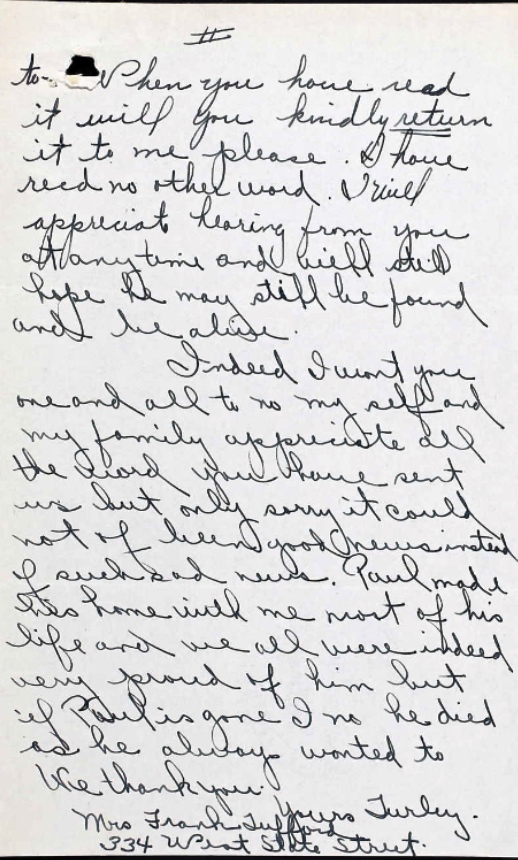 II
to- When you have read
it will you kindly return
it to me please. I have
recd no other word. I will
appreciat hearing from you
at anytime and will still
hope he may still be found
and be alive.
Indeed I wont you
one and all to no my self and
my family appreciate all
the word you have sent
us but only sorry it could
not of been good news instead
of such sad news. Paul made
his home with me most of his
life and we all were indeed
very proud of him but
if Paul is gone I no he died
as he always wonted to
We thank you.
Yours Turley.
Mrs Frank Tufford
334 West State Street.